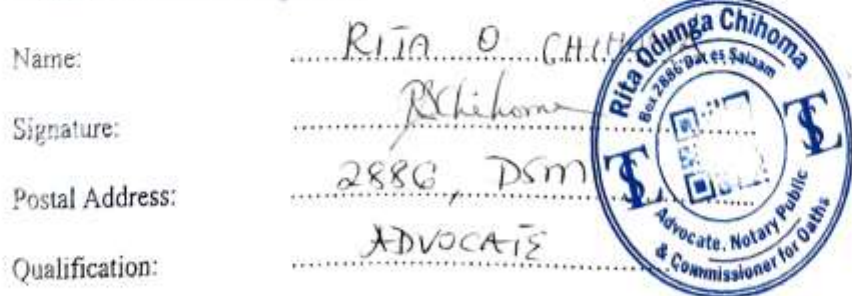 Name: RITA O CHIH
Signature: RChihoma
Postal Address: 2886, DSM
Qualification: ADVOCATE
Rita Odunga Chihoma
Box 2886 Dar es Salaam
Advocate, Notary Public
& Commissioner for Oaths